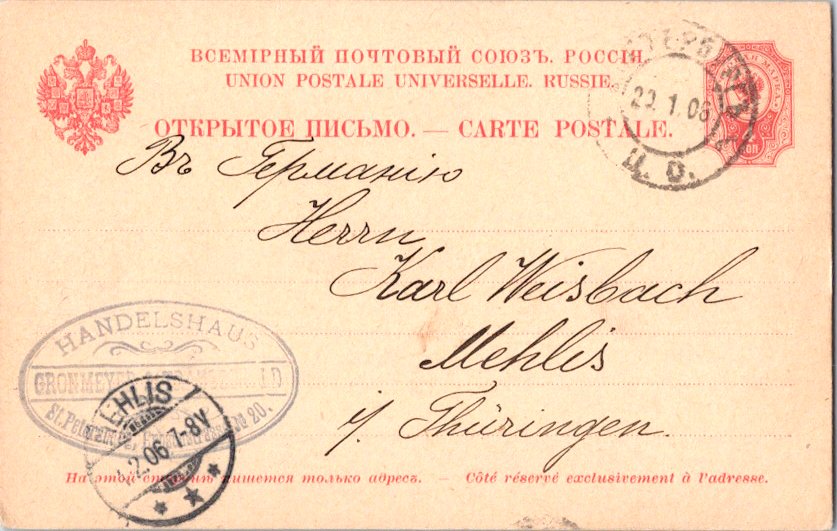 ВСЕМІРНЫЙ ПОЧТОВЫЙ СОЮЗЪ. РОССІЯ.
UNION POSTALE UNIVERSELLE. RUSSIE.
ОТКРЫТОЕ ПИСЬМО. — CARTE POSTALE.
1.06
Ц. О.
Въ Германію
Herrn
Karl Weisbach
Mehlis
i/ Thüringen.
HANDELSHAUS
20.
EHLIS
2.06 7-8V
На этой сторонѣ пишется только адресъ. — Côté réservé exclusivement à l'adresse.